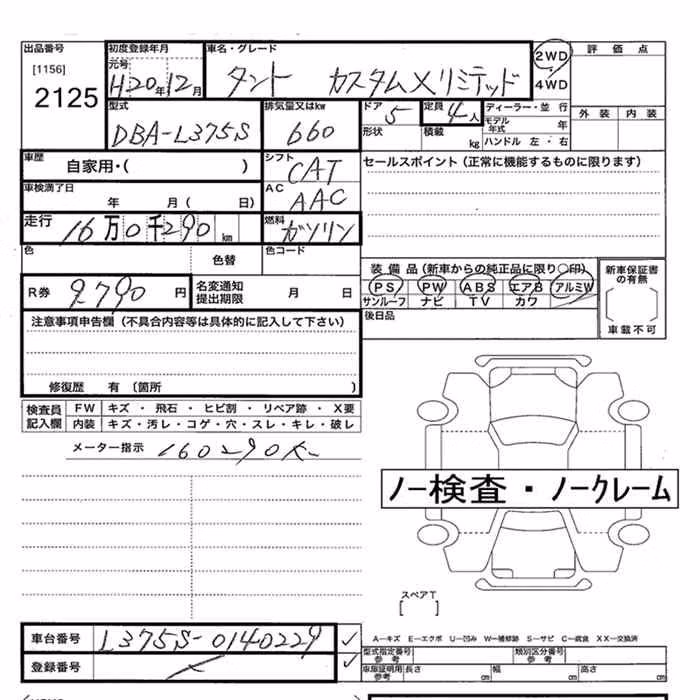 出品番号 初度登録年月 車名・グレード 2WD 評価点
[1156] 元号
2125 H20年12月 タント カスタムXリミテッド 4WD
型式 排気量又はkw ドア 定員 ディーラー・並行 外装 内装
DBA-L375S 660 5 4人 モデル年式 年
形状 積載 kg ハンドル 左・右
車歴 自家用・( ) シフト CAT セールスポイント(正常に機能するものに限ります)
車検満了日 年 月( 日) AC AAC
走行 16万0千290km 燃料 ガソリン
色 色替 色コード
装備品(新車からの純正品に限り○印) 新車保証書の有無
R券 9790円 名変通知提出期限 月 日 PS PW ABS エアB アルミW
サンルーフ ナビ TV カワ
注意事項申告欄(不具合内容等は具体的に記入して下さい) 後日品 車載不可
修復歴 有(箇所 )
検査員記入欄 FW キズ・飛石・ヒビ割・リペア跡・X要
内装 キズ・汚レ・コゲ・穴・スレ・キレ・破レ
メーター指示 160290K
ノー検査・ノークレーム
スペアT
[ ]
車台番号 L375S-0140229 A-キズ E-エクボ U-凹み W-補修跡 S-サビ C-腐食 XX-交換済
型式指定番号 参考 類別区分番号 参考
登録番号 車庫証明用 参考 長さ cm 幅 cm 高さ cm